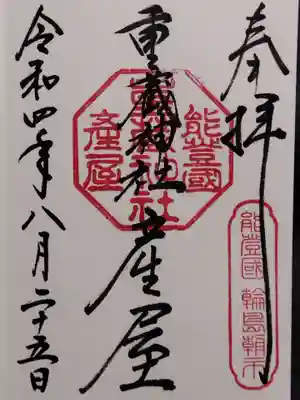 奉拝
能登國 輪島朝市
重蔵神社産屋
能登國
重蔵神社
産屋
令和四年八月二十五日